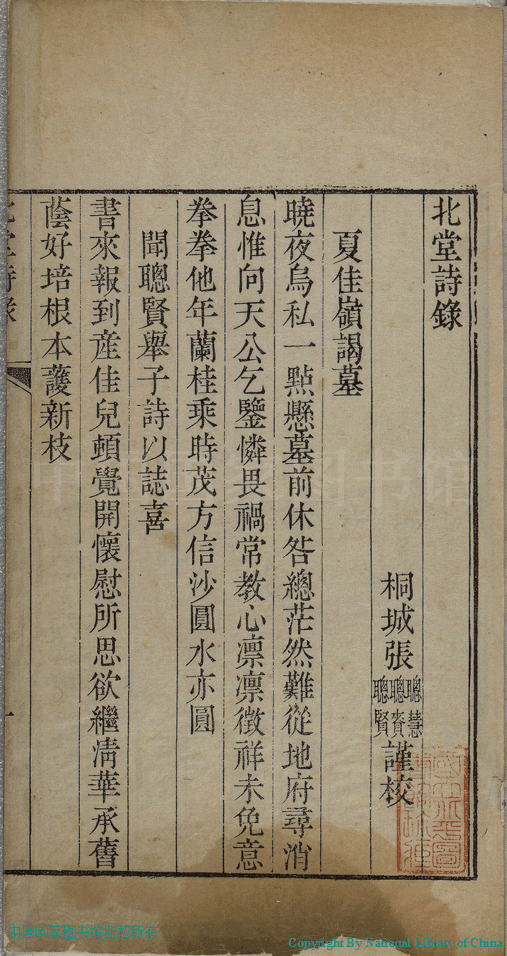 北堂詩錄
桐城張聰慧聰賚聰賢謹校
夏佳嶺謁墓
曉夜烏私一點懸墓前休咎總茫然難從地府尋消
息惟向天公乞鑒憐畏禍常教心凛凛徵祥未免意
拳拳他年蘭桂乘時茂方信沙圓水亦圓
聞聰賢舉子詩以誌喜
書來報到産佳兒頓覺開懷慰所思欲繼淸華承舊
蔭好培根本護新枝
北堂詩錄
一
Copyright By National Library of China